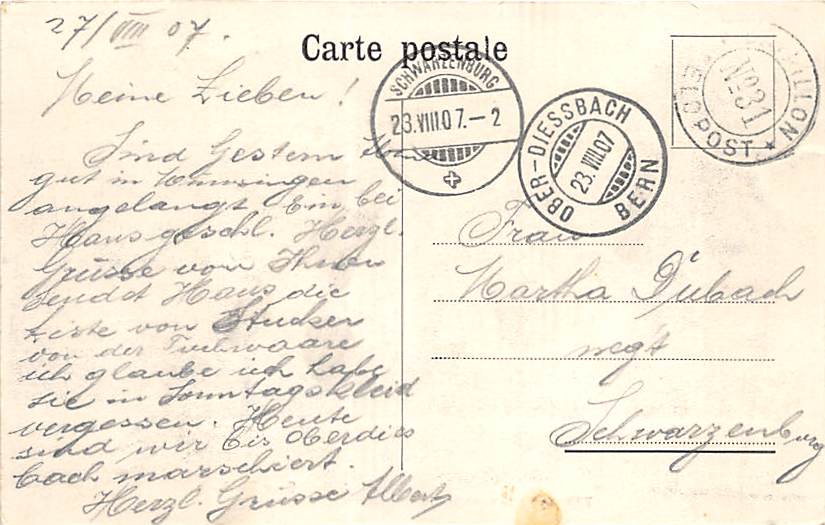 27/VIII 07.
Carte postale
SCHWARZENBURG
23.VIII.07.-2
OBER-DIESSBACH
23.VIII.07
BERN
FELDPOST. ILLON
No 31
Meine Lieben!
Sind Gestern
gut in
angelangt bei
Haus geschl. Herzl.
Grüsse von Ihnen
sendet Hans die
Liste von Stucker
von der Tuchwaare
ich glaube ich habe
sie in Sonntagskleid
vergessen. Heute
sind wir bis Oberdies
bach marschiert.
Herzl. Grüsse Albert
Frau
Martha Dubach
negt
Schwarzenburg